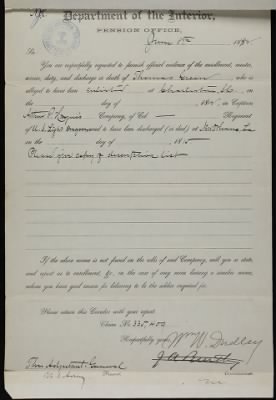 Department of the Interior,
PENSION OFFICE,
June 188
Sir:
You are respectfully requested to furnish official evidence of the enrollment, muster,
service, duty, and discharge or death of Thomas who is
alleged to have been enlisted at Charleston
on the day of , 18 , in Captain
Company, of Col Regiment
of U.S. Light Dragoons and to have been discharged (or died) at
on the day of , 1815
Please give copy of descriptive list
If the above name is not found on the rolls of said Company, will you so state,
and report as to enrollment, &c., in the case of any man bearing a similar name,
whom you have good reason for believing to be the soldier inquired for.
Please return this Circular with your report.
Claim No. 335,402
Respectfully yours,
Wm W. Dudley
The Adjutant General
U.S. Army